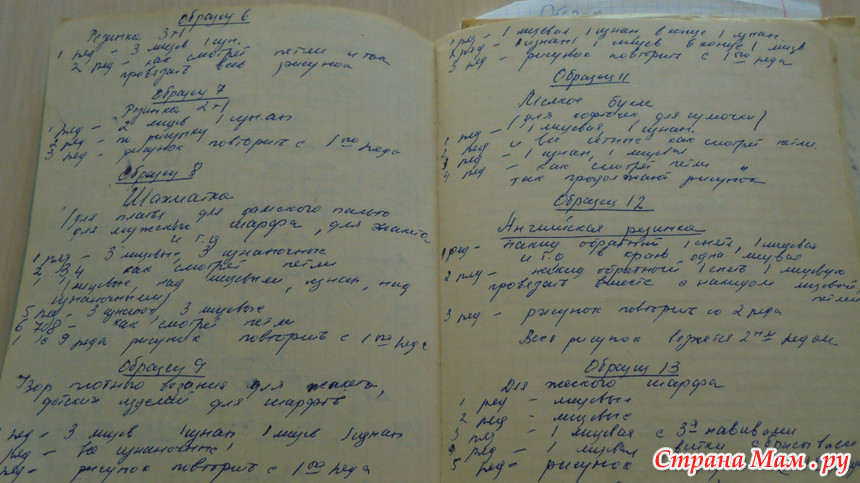 Образец 6
Резинка 3+1
1 ряд - 3 лицев 1 изн.
2 ряд - как смотрят петли и так
провязать весь рисунок
Образец 7
Резинка 2+1
1 ряд - 2 лицев 1 изнан
2 ряд - по рисунку
3 ряд - рисунок повторить с 1го ряда
Образец 8
Шахматка
(для платья, для дамского пальто
для мужского шарфа, для
и т.д
1 ряд - 3 лицевых 3 изнаночные
2 3 4 как смотрят петли
(лицевые, над лицевыми, изнан, над
изнаночными)
5 ряд - 3 изнаноч, 3 лицевые
6 7 8 - как смотрят петли
9 ряда рисунок повторить с 1го ряда
Образец 9
Узор плотного вязания для жакета,
детских изделий для шарфов
ряд - 3 лицев 1 изнан 1 лицев 1 изнан
ряд - все изнаночные
ряд - рисунок повторить с 1го ряда
1 ряд - 1 лицевая 1 изнан, в конце 1 изнан.
2 ряд - 1 изнан 1 лицев в конце 1 лицев
3 ряд - рисунок повторить с 1го ряда
Образец 11
Мелкое букле
(для кофточек, для сумочки)
1 ряд - 1 лицевая 1 изнан.
2 ряд и все чётные как смотрят петли.
3 ряд - 1 изнан, 1 лицевая
4 ряд - как смотрят петли
так продолжают рисунок
Образец 12
Английская резинка
1 ряд - накид обратный 1 снять, 1 лицевая
и т.д в краю одна лицевая
2 ряд - накид обратный 1 снять 1 лицевую
провязать вместе с накидом лицевой
петлей
3 ряд - рисунок повторить со 2 ряда
Весь рисунок вяжется 2ым рядом.
Образец 13
Для женского шарфа
1 ряд - лицевые
2 ряд - лицевые
3 ряд - 1 лицевая с 3я навивами
4 ряд - 1 лицевая витки сбрасываем
5 ряд - рисунок
Страна Мам.ру